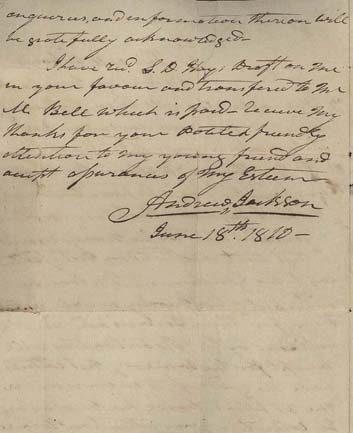 enquiries, and information thereon will
be gratefully acknowledged—
I have recd. S. D. Hays Draft on me
in your favour and transfered to Mr
M Bell which is paid— receive my
thanks for your Polite & friendly
attention to my young friend and
accept assurances of my Esteem
Andrew Jackson
June 18th. 1810—